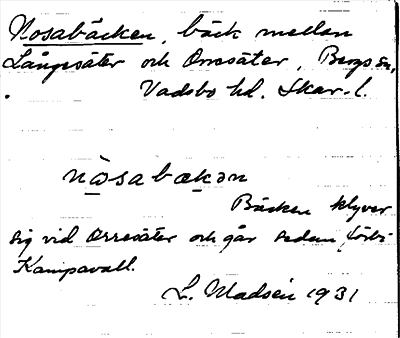 Nosabäcken, bäck mellan
Långesäter och Orresäter, Bergs sn,
Vadsbo hd. Skar. l.
nòsabækən
Bäcken klyver
sig vid Orresäter och går sedan förbi
Kampavall.
L. Madsén 1931